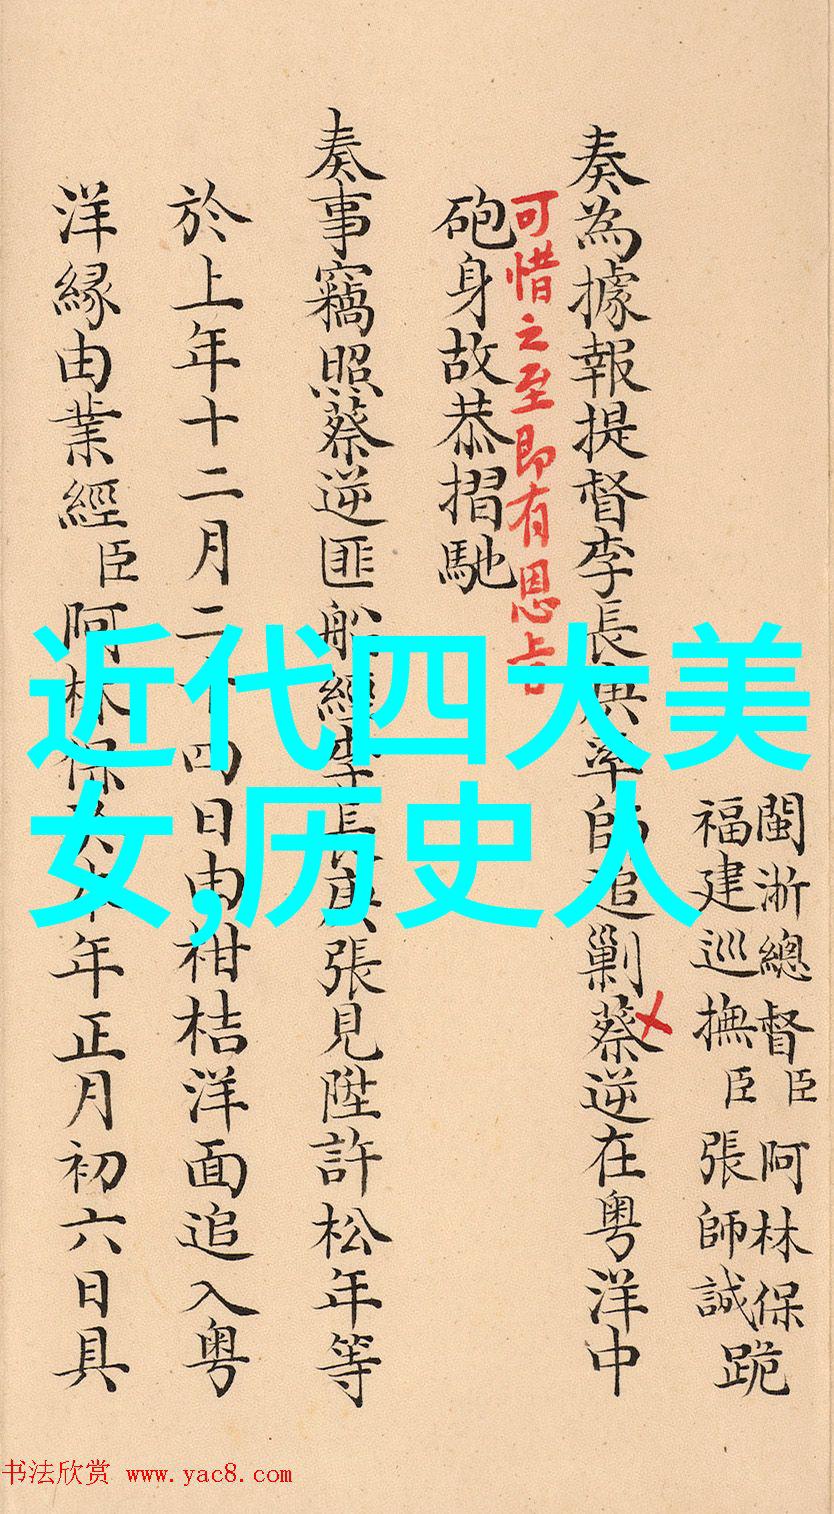 閩浙總督臣阿林保
福建巡撫臣張師誠
跪
奏為據報提督李長庚率師追剿蔡逆在粤洋中
可惜之至即有恩旨
砲身故恭摺馳
奏事竊照蔡逆匪船經李長庚張見陞許松年等
於上年十二月二十四日由柑桔洋面追入粤
洋緣由業經臣阿林保於本年正月初六日具
近代四大美
女,历史人
书法欣赏 www.yac8.com